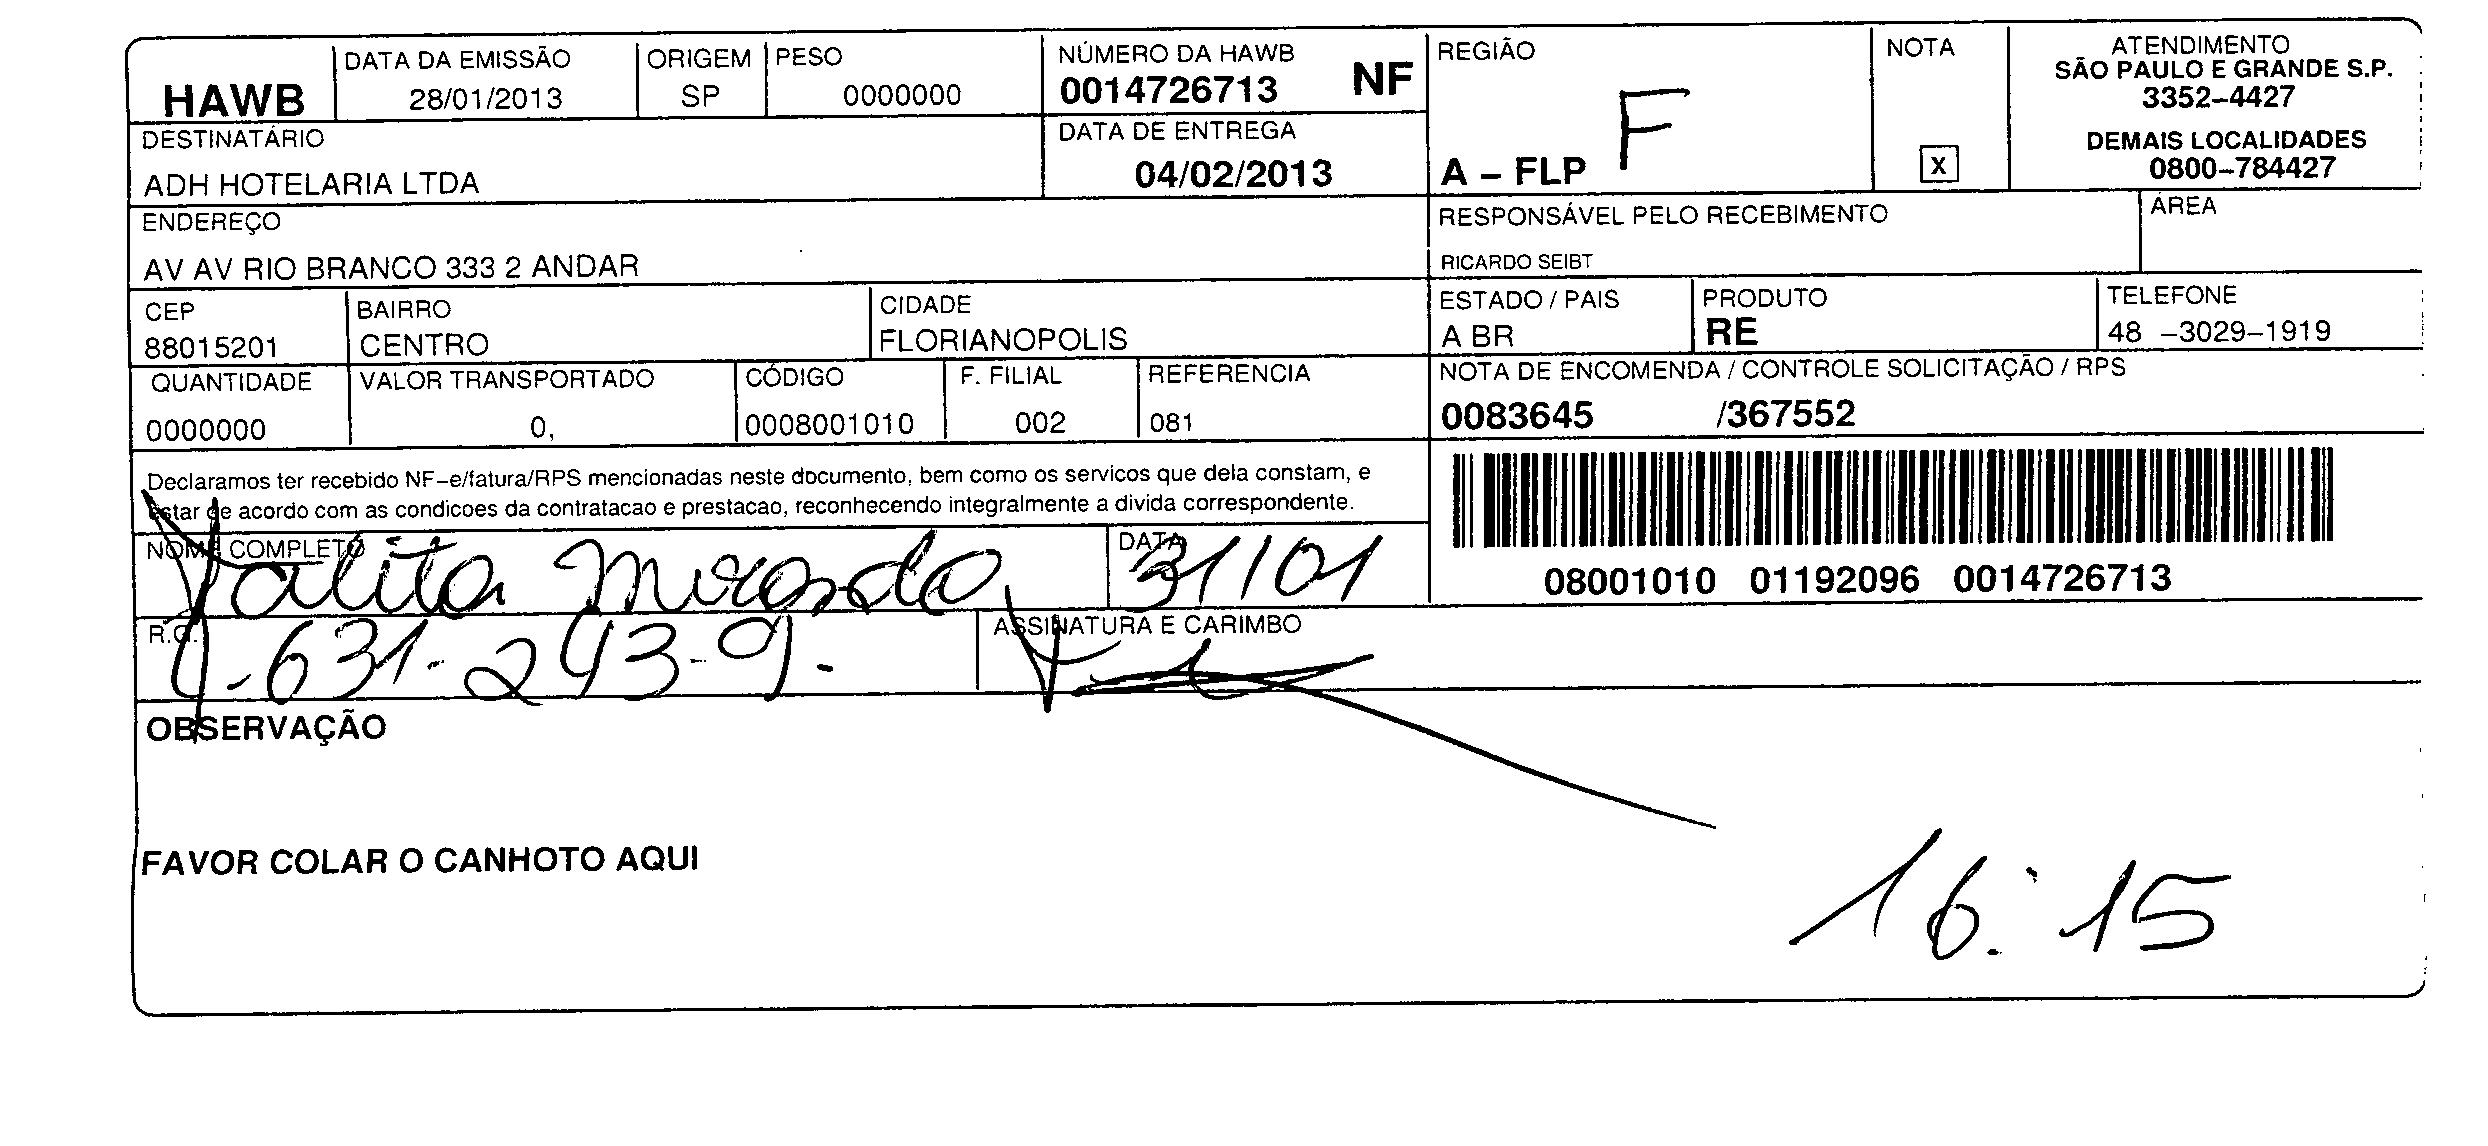 HAWB
DATA DA EMISSÃO
28/01/2013
ORIGEM
SP
PESO
0000000
NÚMERO DA HAWB
0014726713 NF
REGIÃO
A – FLP F
NOTA
X
ATENDIMENTO
SÃO PAULO E GRANDE S.P.
3352–4427
DEMAIS LOCALIDADES
0800–784427
DESTINATÁRIO
ADH HOTELARIA LTDA
DATA DE ENTREGA
04/02/2013
ENDEREÇO
AV AV RIO BRANCO 333 2 ANDAR
RESPONSÁVEL PELO RECEBIMENTO
RICARDO SEIBT
ÁREA
CEP
88015201
BAIRRO
CENTRO
CIDADE
FLORIANOPOLIS
ESTADO / PAIS
A BR
PRODUTO
RE
TELEFONE
48 –3029–1919
QUANTIDADE
0000000
VALOR TRANSPORTADO
0,
CÓDIGO
0008001010
F. FILIAL
002
REFERENCIA
081
NOTA DE ENCOMENDA / CONTROLE SOLICITAÇÃO / RPS
0083645 /367552
Declaramos ter recebido NF–e/fatura/RPS mencionadas neste documento, bem como os servicos que dela constam, e
estar de acordo com as condicoes da contratacao e prestacao, reconhecendo integralmente a divida correspondente.
08001010 01192096 0014726713
NOME COMPLETO
Talita Miranda
DATA
31/01
R.G.
631-243-9.
ASSINATURA E CARIMBO
OBSERVAÇÃO
FAVOR COLAR O CANHOTO AQUI
16:15